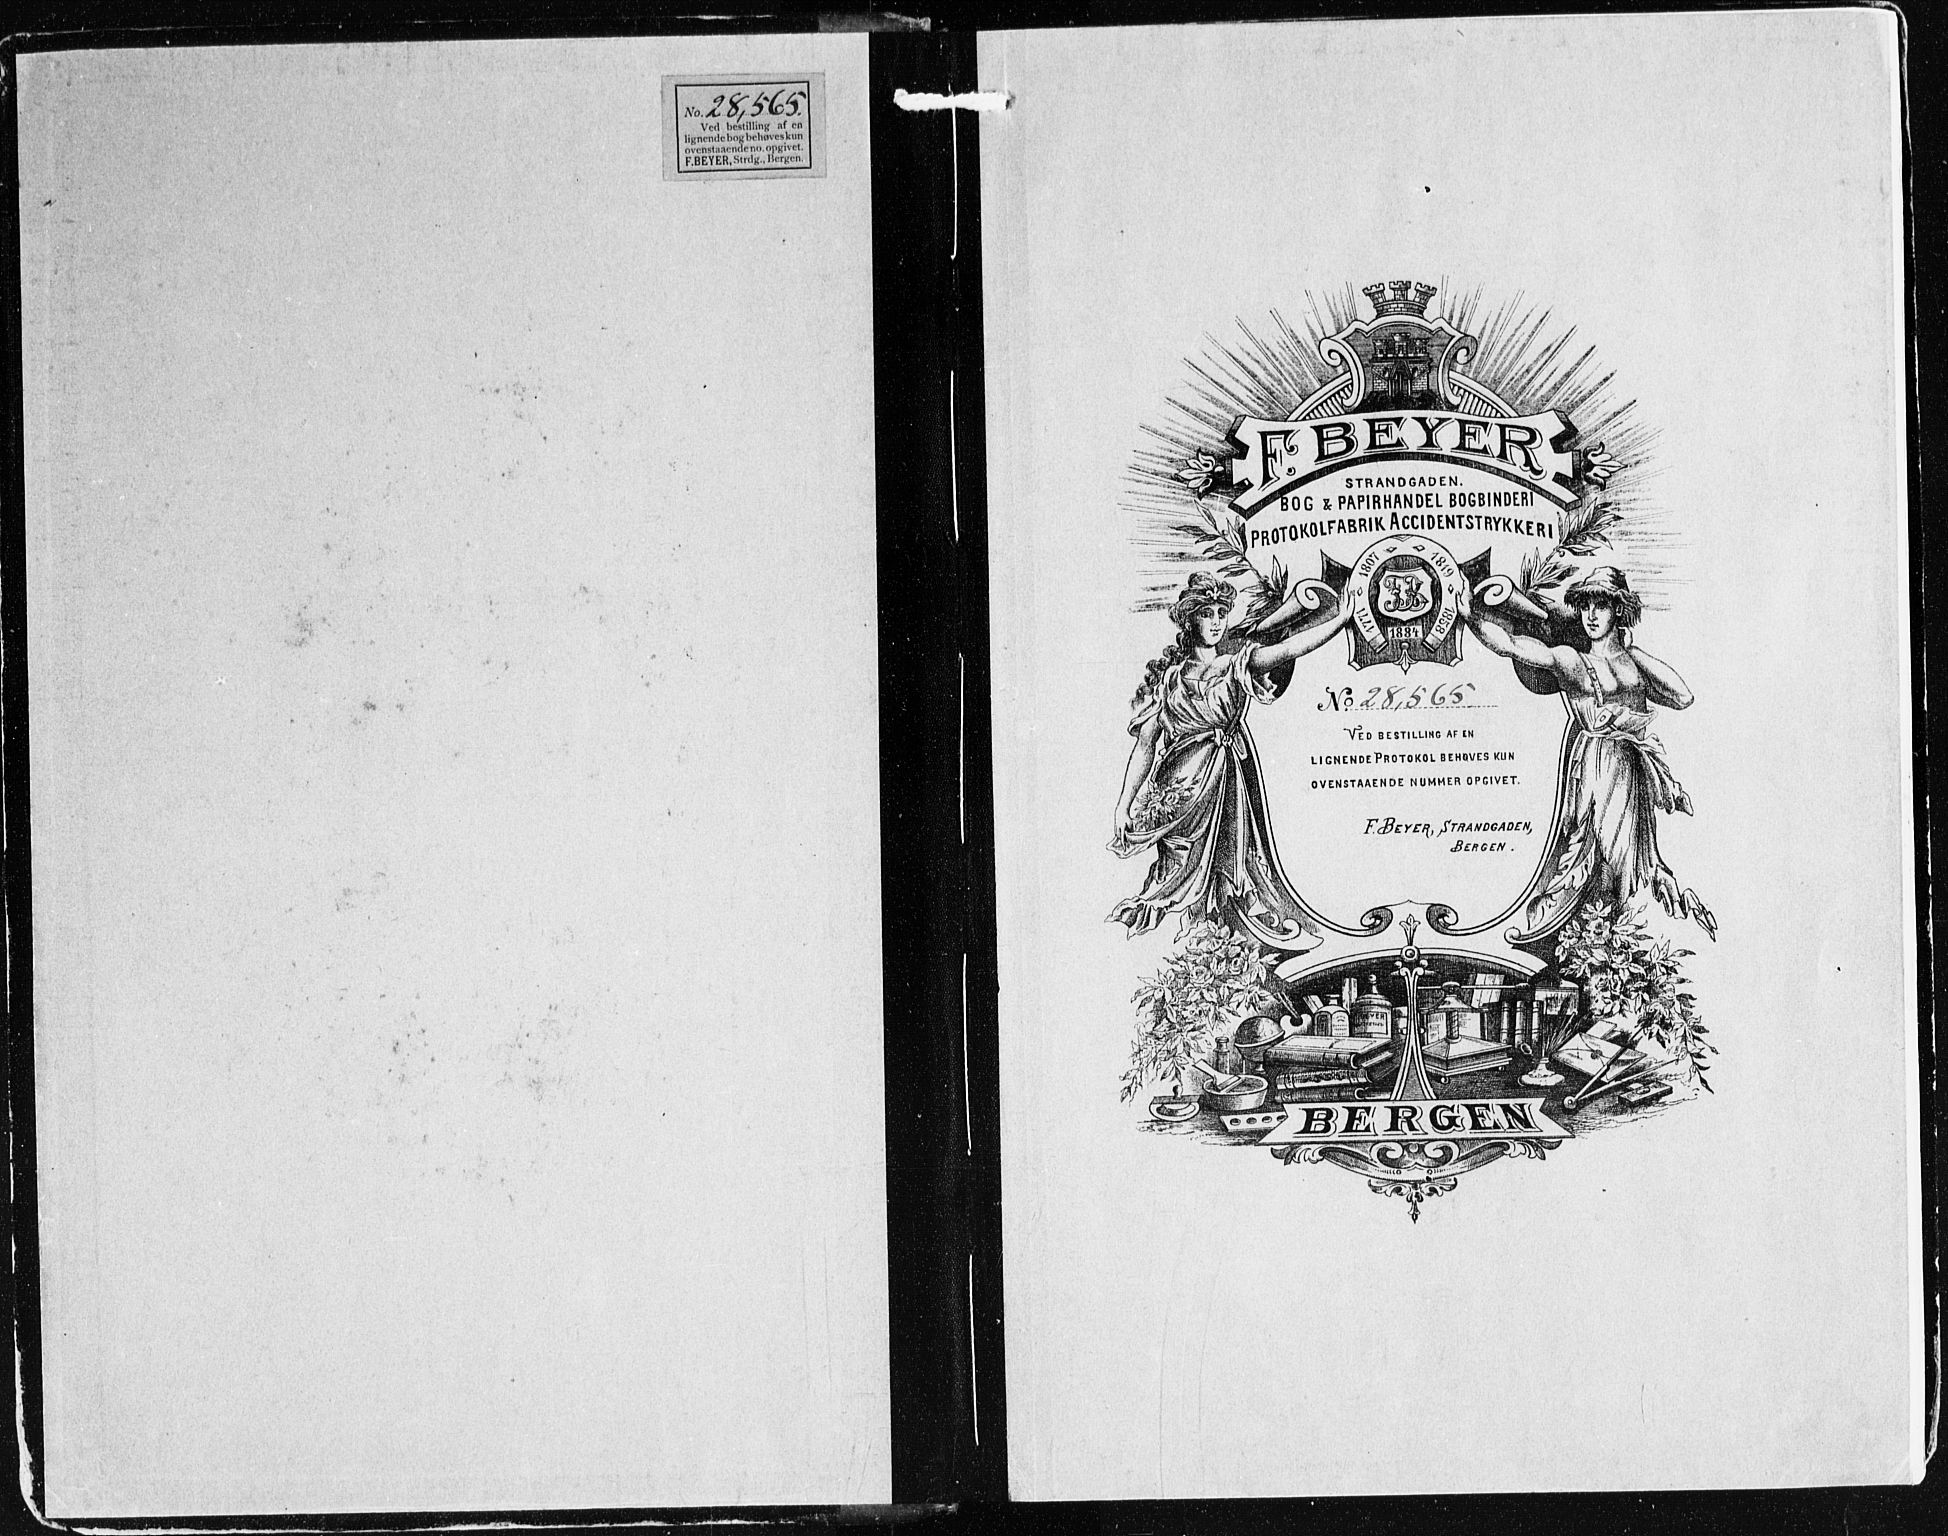 No. 28,565.
Ved bestilling af en
lignende bog behøves kun
ovenstaaende no. opgivet.
F. BEYER, Strdg., Bergen.
F. BEYER
STRANDGADEN.
BOG & PAPIRHANDEL BOGBINDERI
PROTOKOLFABRIK ACCIDENTSTRYKKERI
1771 1807 1819 1858
1884
No. 28,565
VED BESTILLING AF EN
LIGNENDE PROTOKOL BEHØVES KUN
OVENSTAAENDE NUMMER OPGIVET.
F. BEYER, STRANDGADEN,
BERGEN.
BEYER
BERGEN